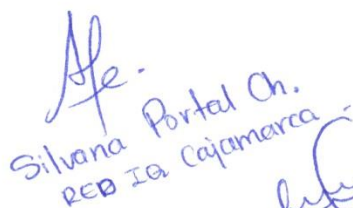 Silvana Portal Ch.
RED IQ Cajamarca